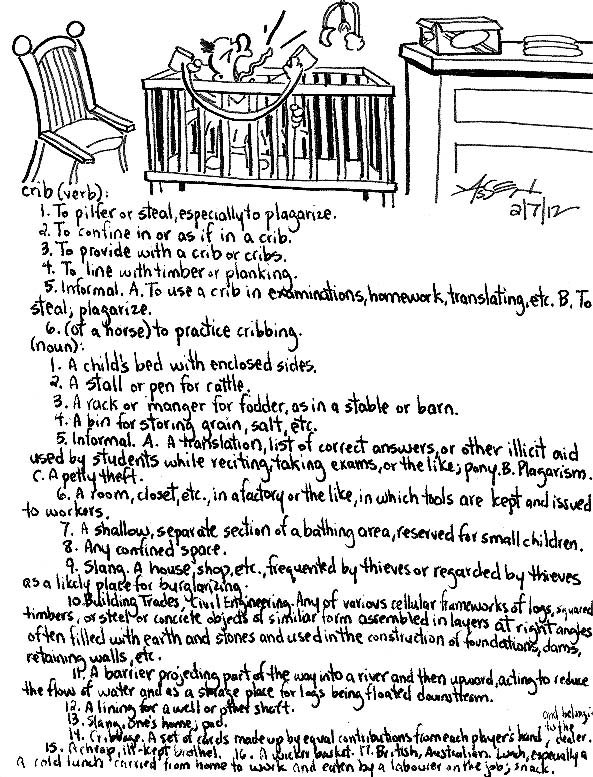 2/7/12
crib (verb):
1. To pilfer or steal, especially to plagarize.
2. To confine in or as if in a crib.
3. To provide with a crib or cribs.
4. To line with timber or planking.
5. Informal. A. To use a crib in examinations, homework, translating, etc. B. To
steal; plagarize.
6. (of a horse) to practice cribbing.
(noun):
1. A child's bed with enclosed sides.
2. A stall or pen for cattle.
3. A rack or manger for fodder, as in a stable or barn.
4. A bin for storing grain, salt, etc.
5. Informal. A. A translation, list of correct answers, or other illicit aid
used by students while reciting, taking exams, or the like; pony. B. Plagarism.
C. A petty theft.
6. A room, closet, etc., in a factory or the like, in which tools are kept and issued
to workers.
7. A shallow, separate section of a bathing area, reserved for small children.
8. Any confined space.
9. Slang. A house, shop, etc., frequented by thieves or regarded by thieves
as a likely place for burglarizing.
10. Building Trades, Civil Engineering. Any of various cellular frameworks of logs, squared
timbers, or steel or concrete objects of similar form assembled in layers at right angles
often filled with earth and stones and used in the construction of foundations, dams,
retaining walls, etc.
11. A barrier projecting part of the way into a river and then upward, acting to reduce
the flow of water and as a storage place for logs being floated downstream.
12. A lining for a well or other shaft.
13. Slang. One's home; pad.
14. Cribbage. A set of cards made up by equal contributions from each player's hand, and belongi- to the dealer.
15. A cheap, ill-kept brothel. 16. A wicker basket. 17. British, Australian. Lunch, especially a
a cold lunch carried from home to work and eaten by a labourer on the job; snack.